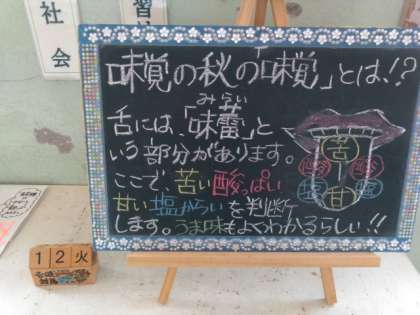 社会
習
味覚の秋の「味覚」とは!?
みらい
舌には、「味蕾」と
いう部分があります。
ここで、苦い酸っぱい
甘い塩からいを判断
します。うま味もよくわかるらしい!!
苦
酸 酸
塩 甘 塩
12火